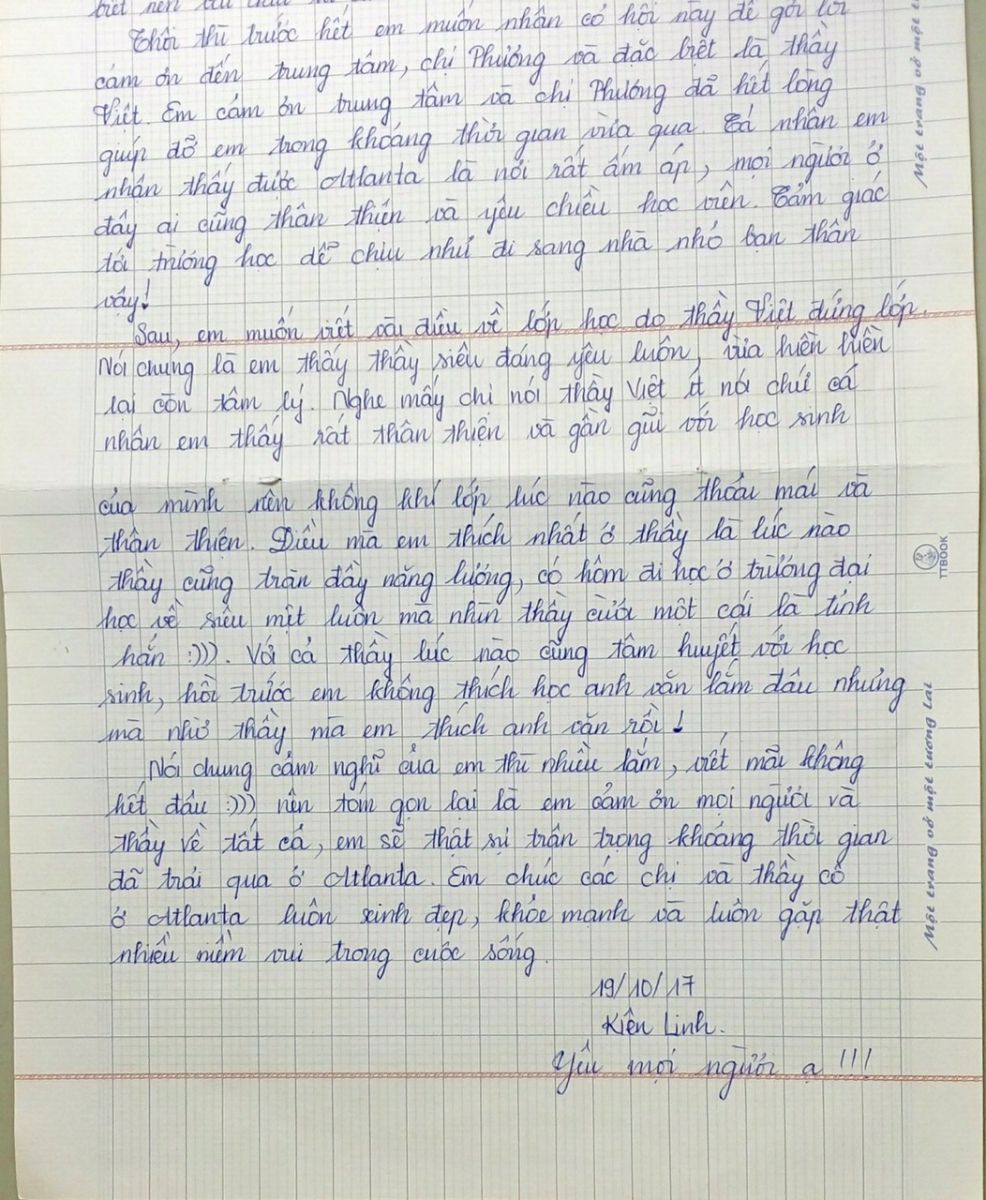 biết nên
Thôi thì trước hết em muốn nhân cơ hội này để gởi lời
cảm ơn đến trung tâm, chị Phương và đặc biệt là thầy
Việt. Em cảm ơn trung tâm và chị Phương đã hết lòng
giúp đỡ em trong khoảng thời gian vừa qua. Cá nhân em
nhận thấy được Atlanta là nơi rất ấm áp, mọi người ở
đây ai cũng thân thiện và yêu chiều học viên. Cảm giác
tới trường học dễ chịu như đi sang nhà nhỏ bạn thân
vậy!
Sau, em muốn viết vài điều về lớp học do thầy Việt đứng lớp.
Nói chung là em thấy thầy siêu đáng yêu luôn, vừa hiền hiền
lại còn tâm lý. Nghe mấy chị nói thầy Việt ít nói chứ cá
nhân em thấy rất thân thiện và gần gũi với học sinh
của mình nên không khí lớp lúc nào cũng thoải mái và
thân thiện. Điều mà em thích nhất ở thầy là lúc nào
thầy cũng tràn đầy năng lượng, có hôm đi học ở trường đại
học về siêu mệt luôn mà nhìn thầy cười một cái là tỉnh
hẳn :))). Với cả thầy lúc nào cũng tâm huyết với học
sinh, hồi trước em không thích học anh văn lắm đâu nhưng
mà nhờ thầy mà em thích anh văn rồi!
Nói chung cảm nghĩ của em thì nhiều lắm, viết mãi không
hết đâu :))) nên tóm gọn lại là em cảm ơn mọi người và
thầy về tất cả, em sẽ thật sự trân trọng khoảng thời gian
đã trải qua ở Atlanta. Em chúc các chị và thầy cô
ở Atlanta luôn xinh đẹp, khỏe mạnh và luôn gặp thật
nhiều niềm vui trong cuộc sống.
19/10/17
Kiên Linh.
Yêu mọi người ạ !!!
Một trang vở một
TTBOOK
Một trang vở một tương lai